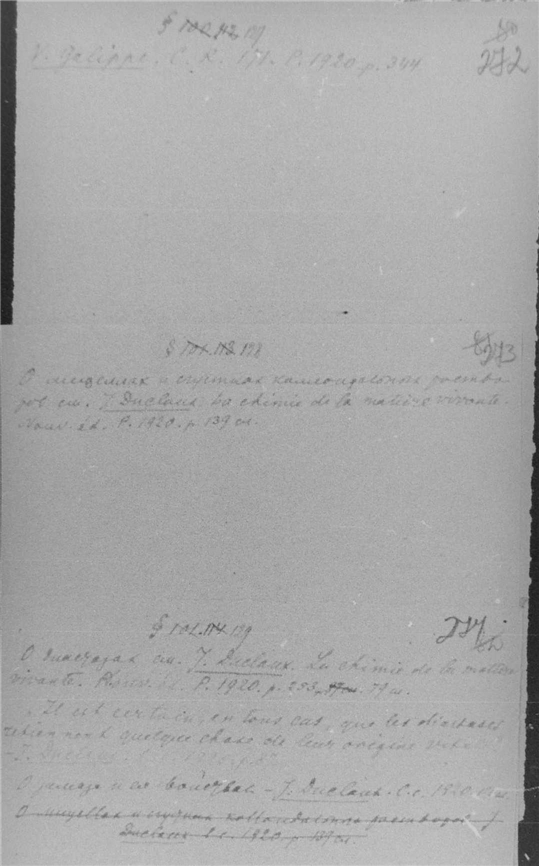 § 100. 112 137
80
V. Galippe. C. R. 171. P. 1920. p. 344
272
§ 101. 113 138
81
273
О мицеллах и сгустках коллоидальных раство-
ров см. J. Duclaux. La chimie de la matière vivante.
Nouv. éd. P. 1920. p. 139 сл.
§ 102. 114 139
274
82
О диастазах см. J. Duclaux. La chimie de la matière
vivante. Nouv. éd. P. 1920. p. 79 сл.
„Il est certain, en tous cas, que les diastases
retiennent quelque chose de leur origine
J. Duclaux. l. c. 1920.
О и их свойствах – J. Duclaux. l. c. 1920
О мицеллах и сгустках коллоидальных растворов J.
Duclaux l. c. 1920. p. 139 сл.